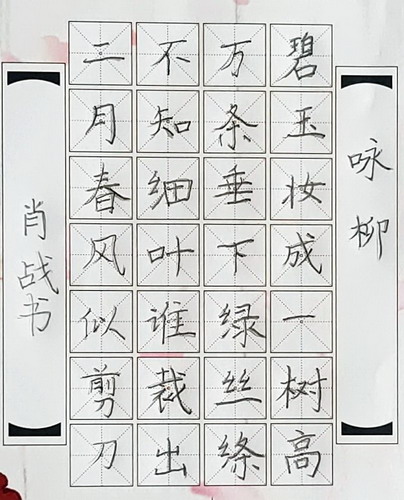 咏柳
碧玉妆成一树高
万条垂下绿丝绦
不知细叶谁裁出
二月春风似剪刀
肖战书